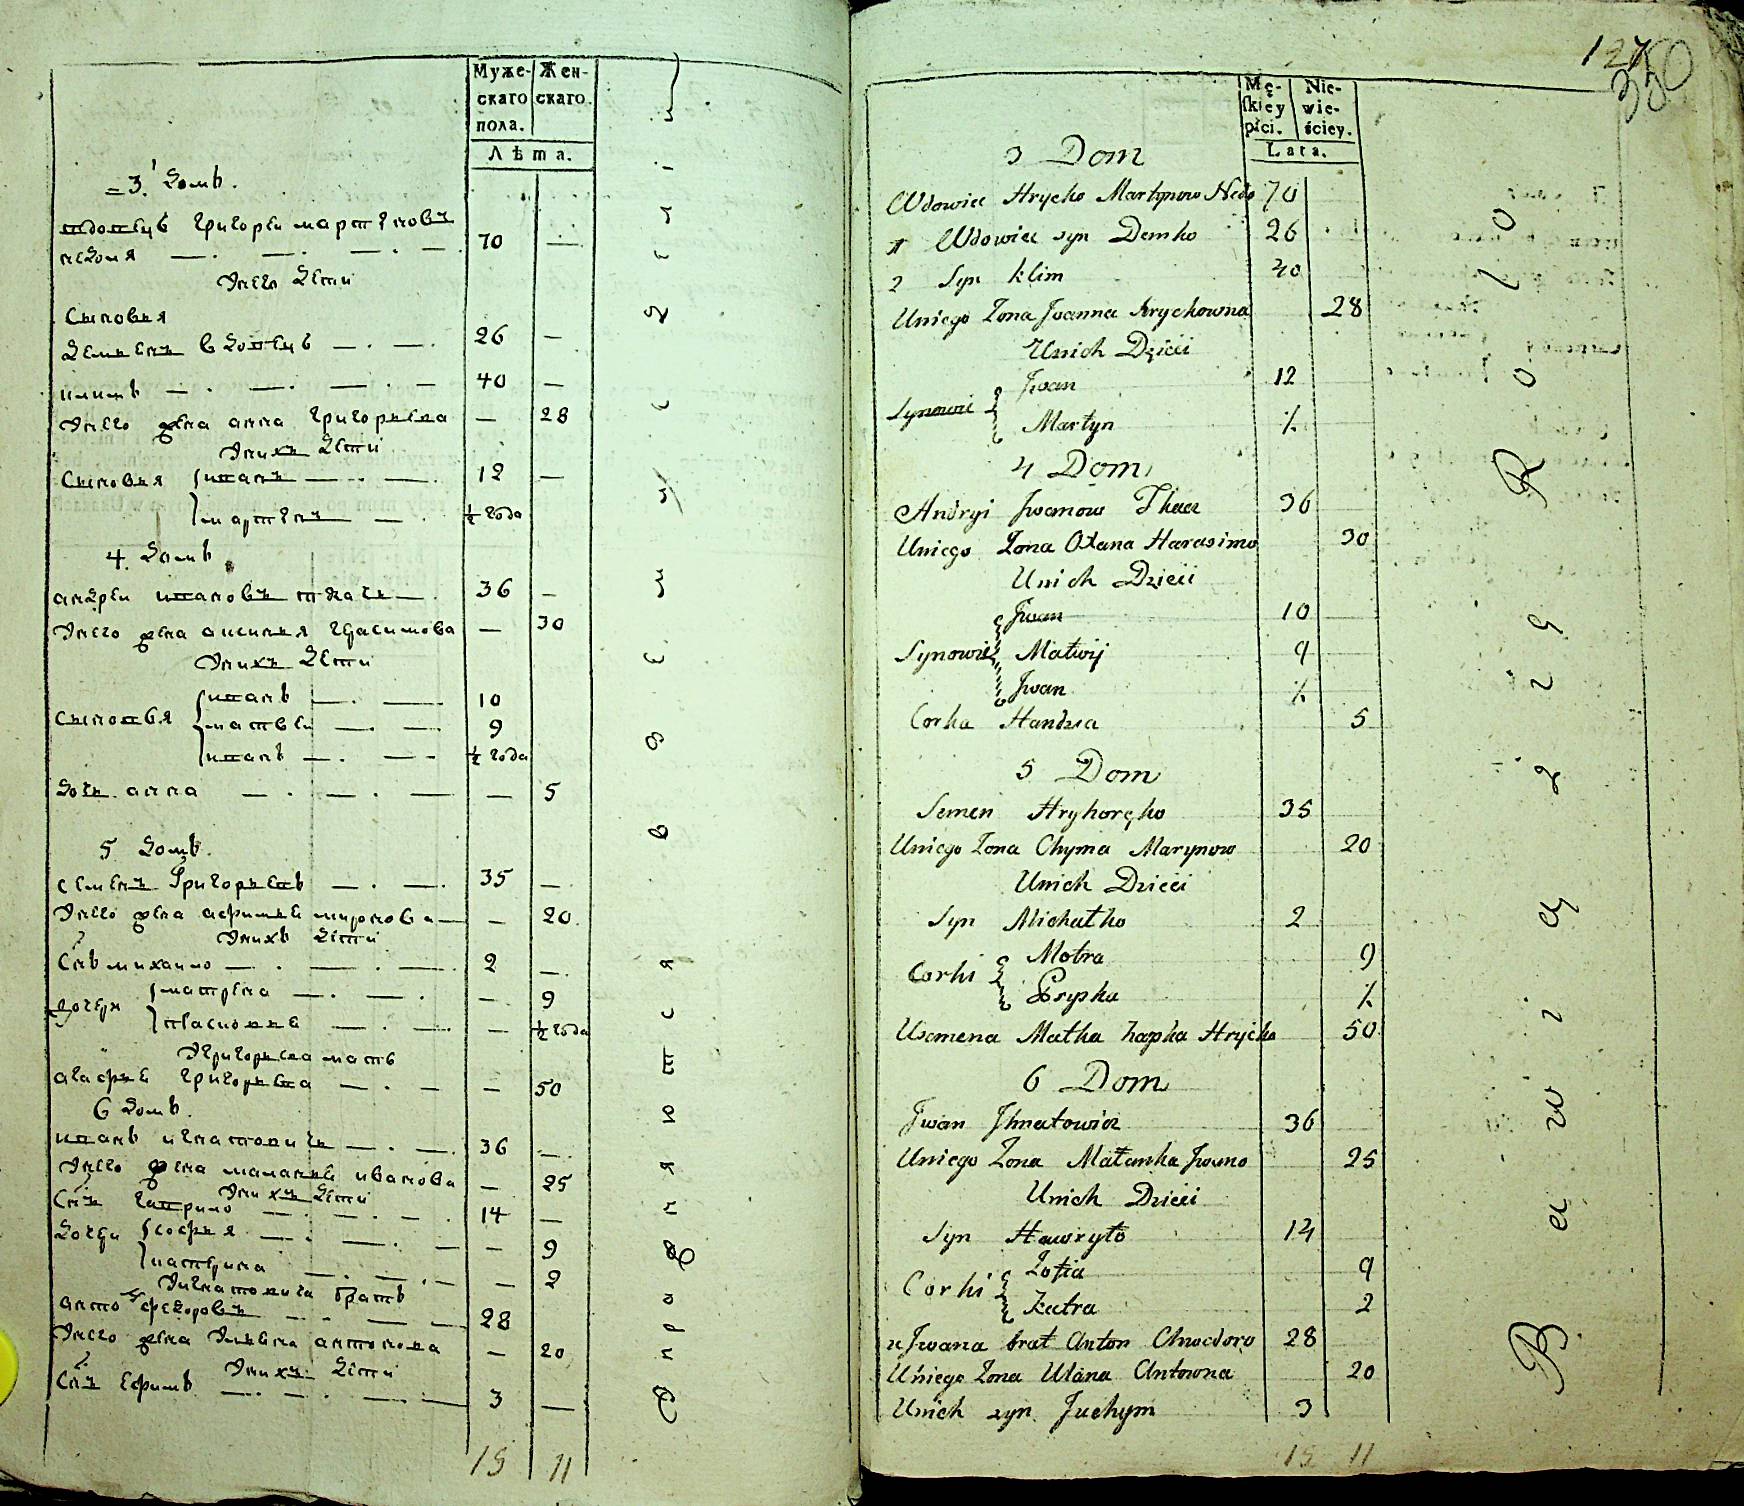 Муже-
скаго
пола.
Жен-
скаго.
Лѣта.
3. Домъ.
вдовецъ григореи мартиновъ
недоля 70 —
Унего дети
Сыновья
Деменъ вдовецъ 26 —
климъ 40 —
Унего жена анна григорьева — 28
Унихъ дети
Сыновья иванъ 12 —
мартинъ ½ года
4. Домъ
андреи ивановъ ткачъ 36 —
Унего жена аксинья герасимова — 30
Унихъ дети
Сыновья иванъ 10
матвеи 9
иванъ ½ года
Дочь анна — 5
5 Домъ.
семенъ Григорьевъ 35 —
Унего жена афимья миронова — 20
Унихъ дети
Снъ михаило 2 —
Дочери матрена — 9
— ½ года
Угригорьева мать
агафья григорьева — 50
6 Домъ.
иванъ игнатовичъ 36 —
Унего жена маланья иванова — 25
Унихъ дети
Снъ гаврило 14 —
Дочери софья — 9
катерина — 2
Уигнатовича братъ
антонъ федоровъ 28
Унего жена Ульяна антонова — 20
Унихъ дети
Снъ Ефимъ 3 —
15 11
127
350
Mę-
skiey
płci.
Nie-
wie-
ściey.
Lata.
3 Dom
Wdowiec Hrycko Martynow Nedo 70
1 Wdowiec syn Demko 26
2 Syn Klim 40
Uniego Zona Jwanna Hrychowna 28
Unich Dzieci
Jwan 12
Synowie
Martyn ½
4 Dom
Andryi Jwanow Tkacz 36
Uniego Zona Oxana Harasimo 30
Unich Dzieci
Jwan 10
Synowie Matwij 9
Jwan ½
Corka Handzia 5
5 Dom
Semen Hryhoręko 35
Uniego Zona Chyma Marynow 20
Unich Dzieci
Syn Michałko 2
Motra 9
Corki
Prypka ½
Usemena Matka hapka Hrycko 50
6 Dom
Jwan Jhnatowicz 36
Uniego Zona Małanka Jwano 25
Unich Dzieci
Syn Hawryło 14
Zofia 9
Corki
Katra 2
u Jwana brat Anton Chwedoro 28
Uniego Zona Ulana Antowna 20
Unich syn Juchym 3
15 11